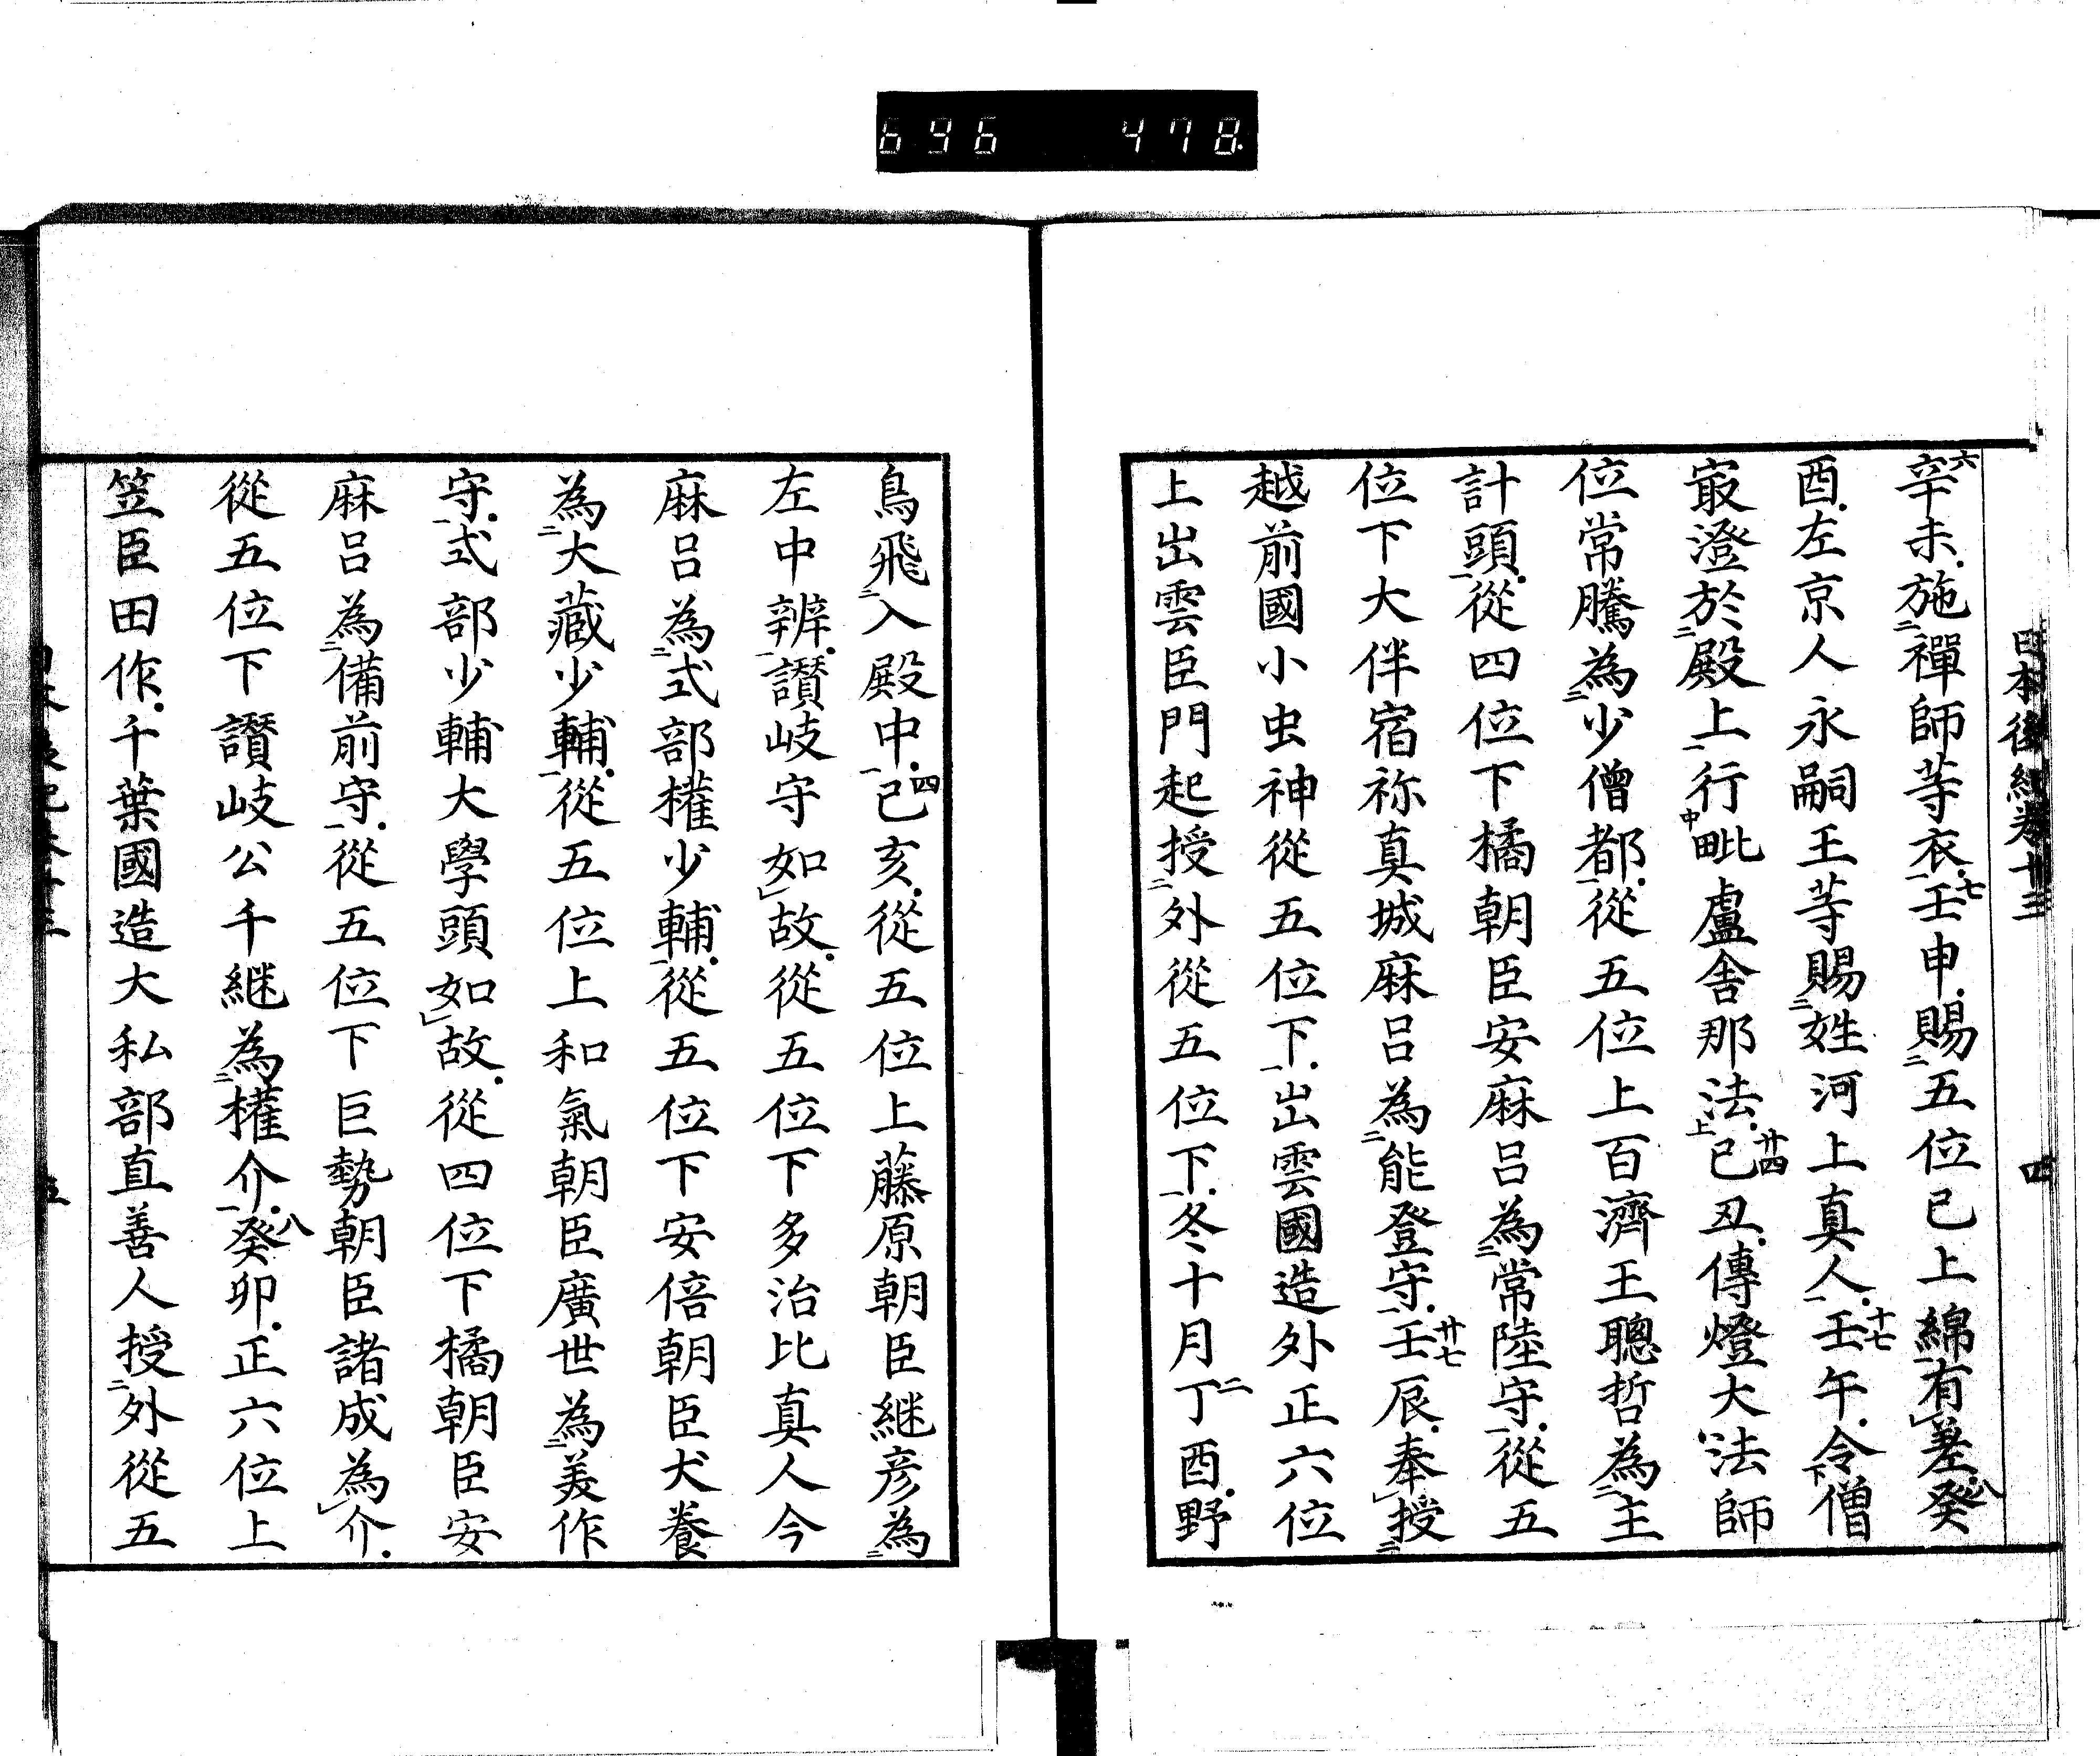 696 478
日本後紀卷十三 四
六辛未施二禪師等衣一七壬申賜二五位已上綿一有レ差八癸
酉左京人永嗣王等賜二姓河上真人一十七壬午令下僧
㝡澄於二殿上一行中毗盧舍那法上廿四己丑傳燈大法師
位常騰為二少僧都一從五位上百濟王聰哲為二主
計頭一從四位下橘朝臣安麻呂為二常陸守一從五
位下大伴宿祢真城麻呂為二能登守一廿七壬辰奉レ授二
越前國小虫神從五位下一出雲國造外正六位
上出雲臣門起授二外從五位下一冬十月二丁酉野
鳥飛二入殿中一四己亥從五位上藤原朝臣継彦為二
左中辨一讃岐守如レ故從五位下多治比真人今
麻呂為二式部權少輔一從五位下安倍朝臣犬養
為二大藏少輔一從五位上和氣朝臣廣世為二美作
守一式部少輔大學頭如レ故從四位下橘朝臣安
麻呂為二備前守一從五位下巨勢朝臣諸成為レ介
從五位下讃岐公千継為二權介一八癸卯正六位上
笠臣田作千葉國造大私部直善人授二外從五